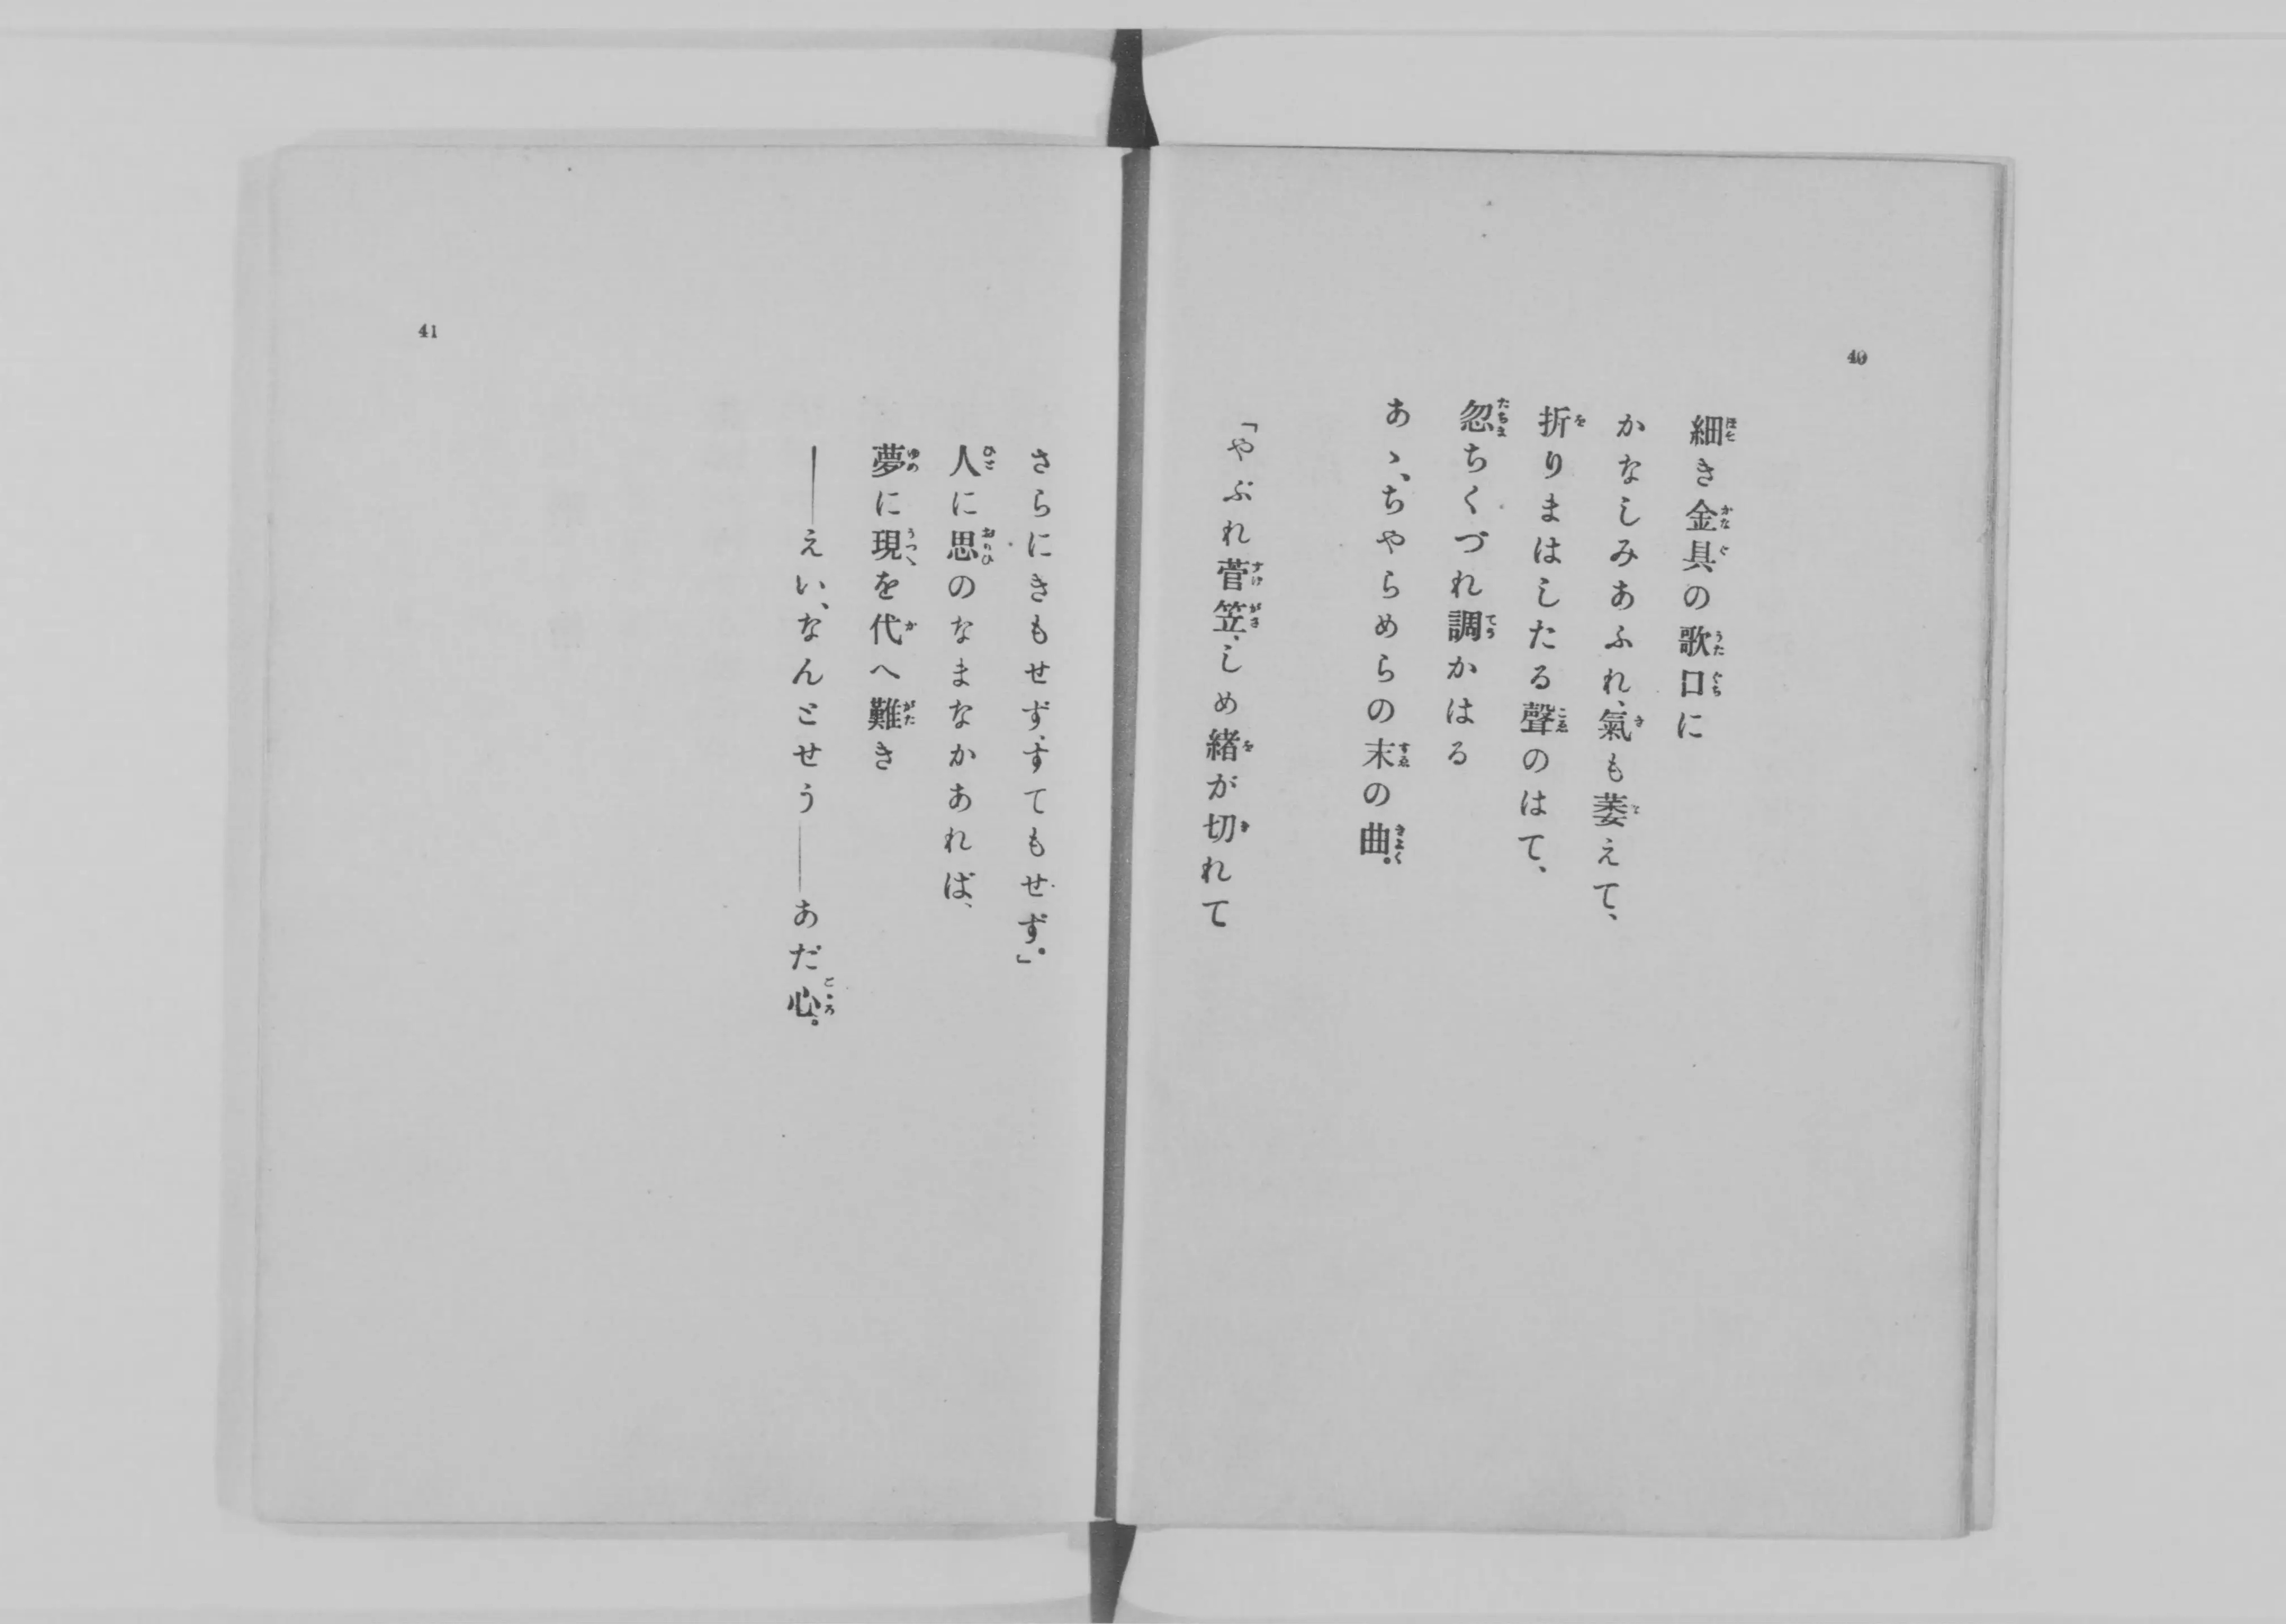 40
細き金具の歌口に
かなしみあふれ、氣も萎えて、
折りまはしたる聲のはて、
忽ちくづれ調かはる
あゝ、ちやらめらの末の曲。
「やぶれ菅笠、しめ緒が切れて
41
さらにきもせず、すてもせず。」
人に思のなまなかあれば、
夢に現を代へ難き
――えい、なんとせう――あだ心。